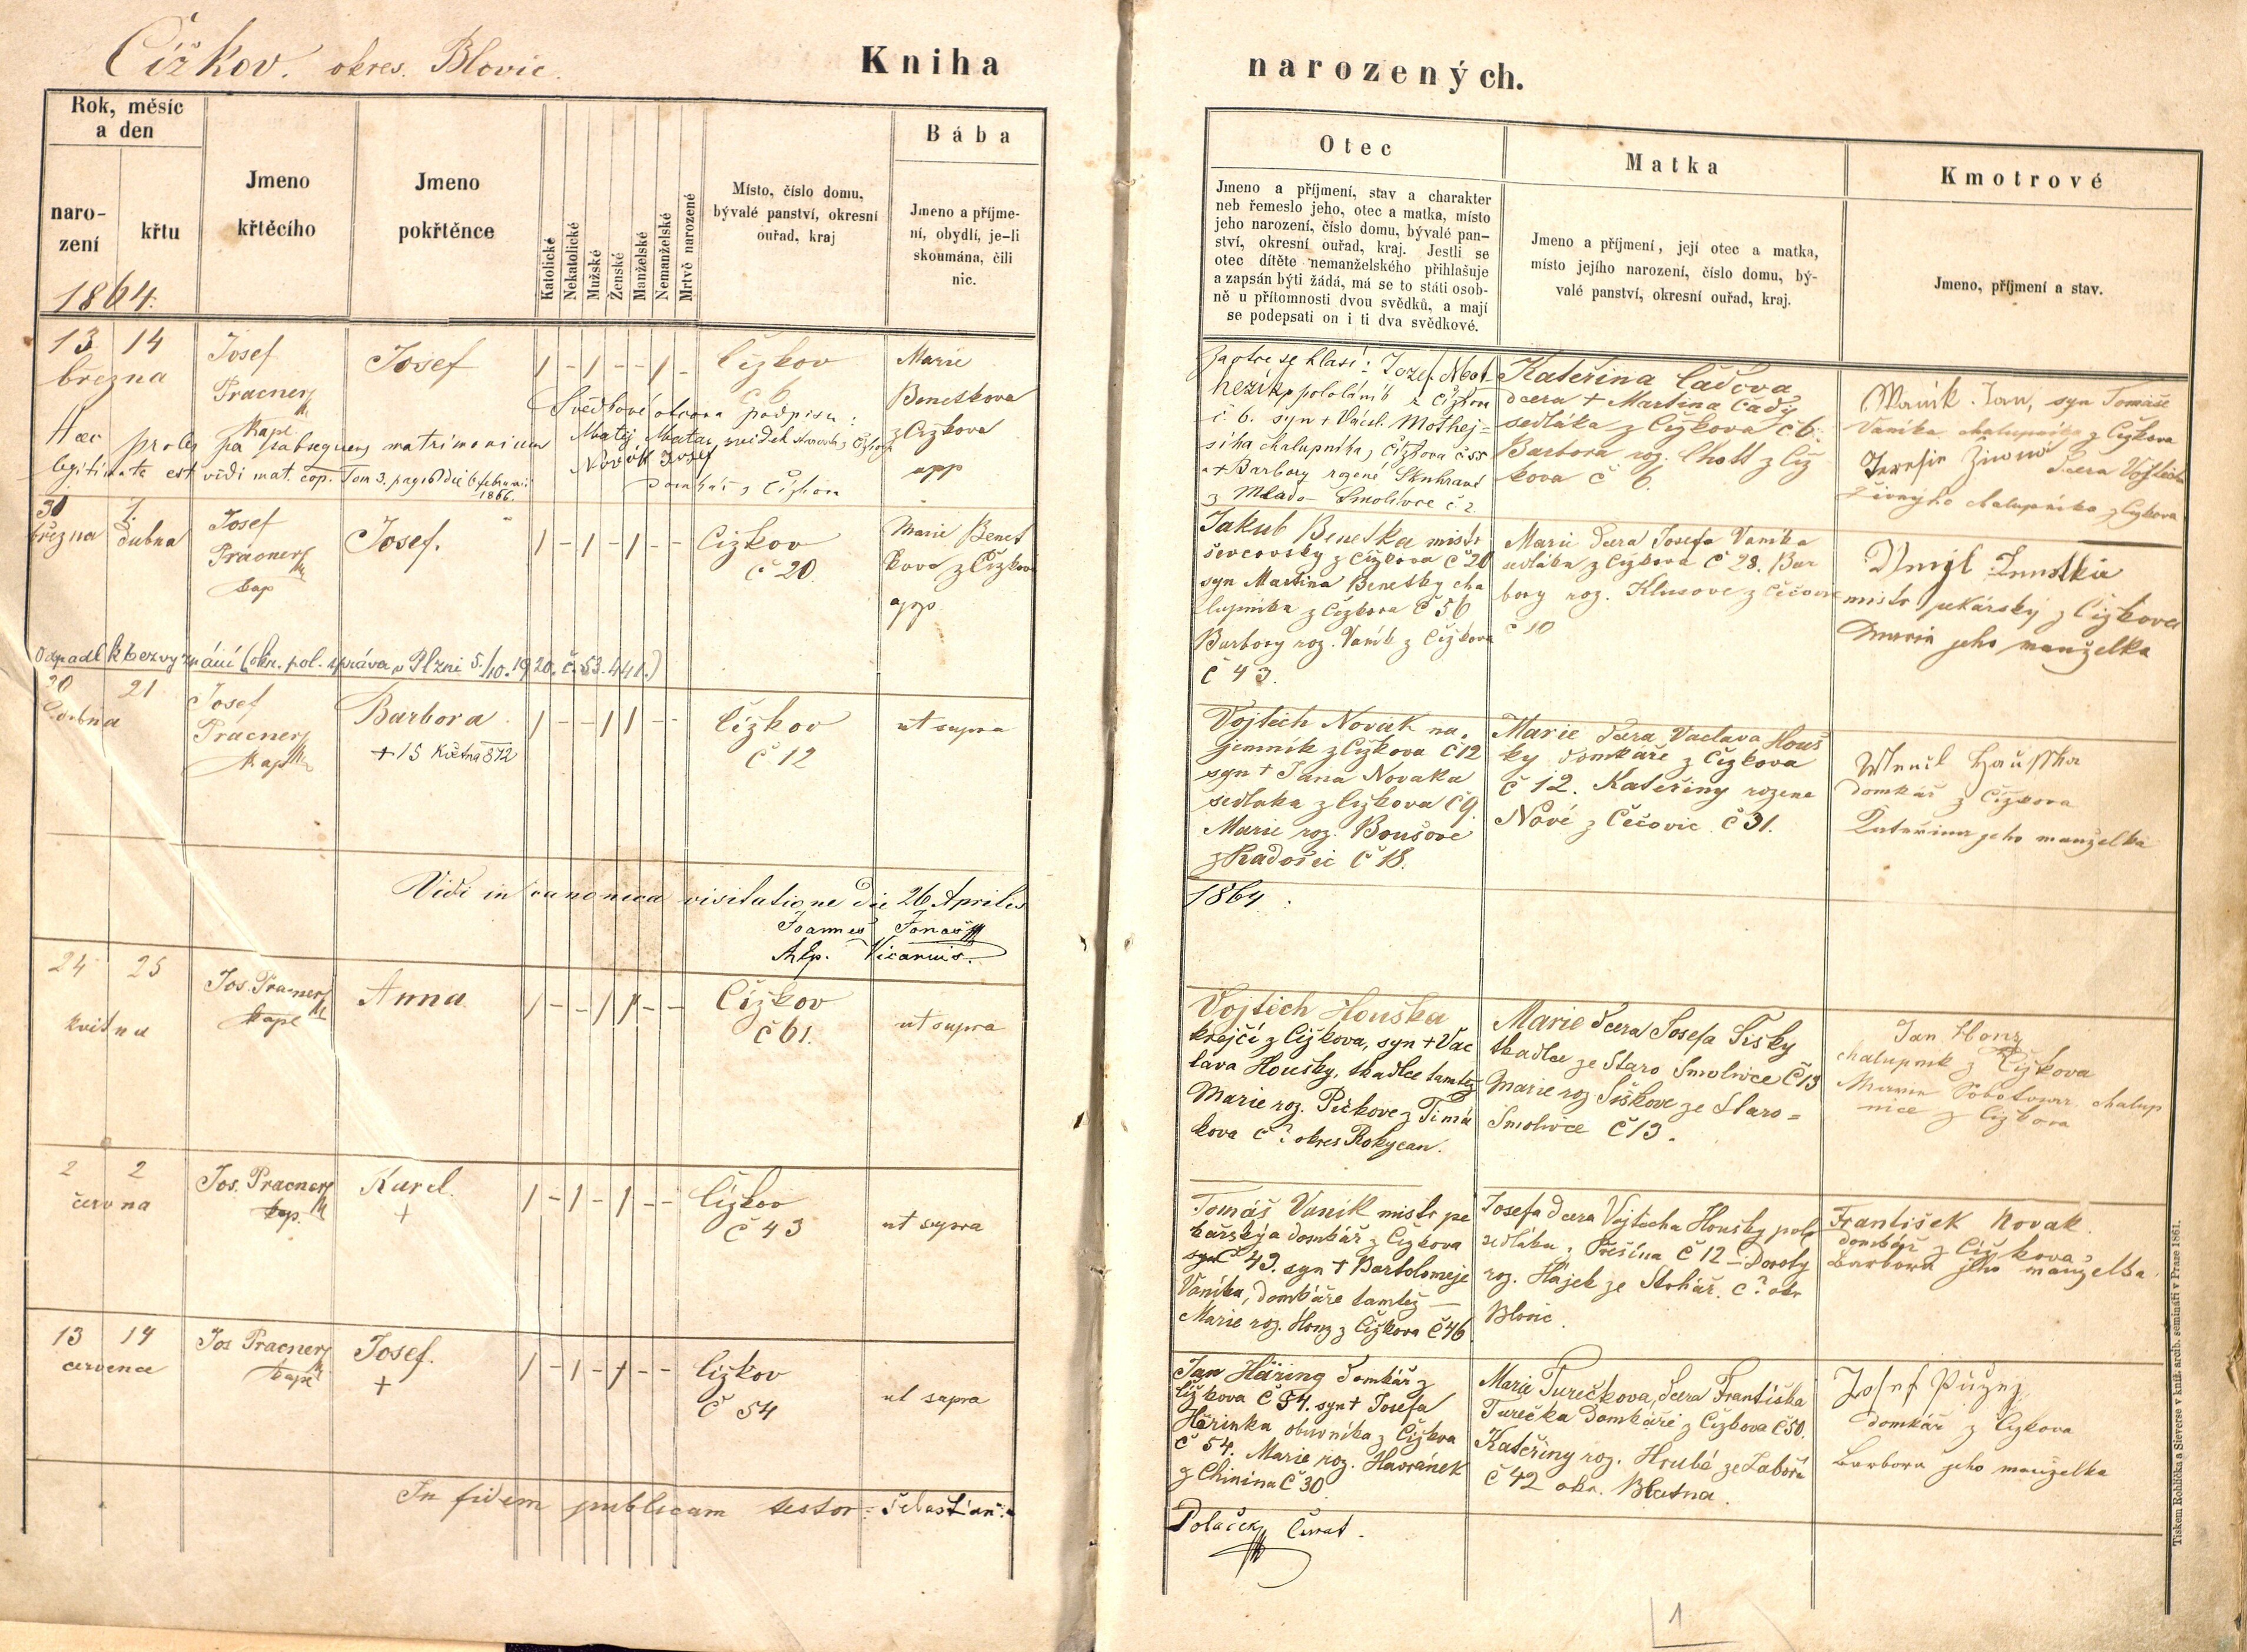 Čížkov. okres. Blovic.
Kniha
narozených.
Rok, měsíc
a den
naro-
zení
křtu
Jmeno
křtěcího
Jmeno
pokřtěnce
Katolické
Nekatolické
Mužské
Ženské
Manželské
Nemanželské
Mrtvě narozené
Místo, číslo domu,
bývalé panství, okresní
ouřad, kraj
Bába
Jmeno a příjme-
ní, obydlí, je-li
skoumána, čili
nic.
Otec
Jmeno a příjmení, stav a charakter
neb řemeslo jeho, otec a matka, místo
jeho narození, číslo domu, bývalé pan-
ství, okresní ouřad, kraj. Jestli se
otec dítěte nemanželského přihlašuje
a zapsán býti žádá, má se to státi osob-
ně u přítomnosti dvou svědků, a mají
se podepsati on i ti dva svědkové.
Matka
Jmeno a příjmení, její otec a matka,
místo jejího narození, číslo domu, bý-
valé panství, okresní ouřad, kraj.
Kmotrové
Jmeno, příjmení a stav.
1864.
13 14
března
Josef
Pracner
Kapl
Josef
/ - / - - / -
Čížkov
č 6
Marie
Benetkova
z Čížkova
app
Svědkové otcova podpisu:
Matěj Matas, svědek
Novák Josef
domkář z Čížkova
Haec proles pa subsequens matrimonium
legitimata est vidi mat. cop. Tom 3. pag. 6 die 6 februarii
1866.
Za otce se hlasí: Jozef Mot-
hezík pololáník z Čížkova
č 6. syn + Václ. Mothej=
síka chalupníka z Čížkova č 55
a + Barbory rozené Skuhravé
z Mlado-Smolivce č 2.
Kateřina Čaďova
dcera + Martina Čady
sedláka z Čížkova č 6.
Barbora roz. Chott z Číž
kova č 6.
Vaník Jan, syn Tomáše
Vaníka chalupníka z Čížkova
Terezie Živná dcera Vojtěcha
Živnýho chalupníka z Čížkova
30 1.
března dubna
Josef
Pracner
kap
Josef.
/ - / - / - -
Čížkov
č 20.
Marie Benet
kova z Čížkova
app.
Odpadl k bezvyznání (okr. pol. správa v Plzni 5./10. 1920. č. 53.441.)
Jakub Benetka mistr
ševcovský z Čížkova č 20
syn Martina Benetky cha
lupníka z Čížkova č 56
Barbory roz. Vaník z Čížkova
č 43.
Marie dcera Josefa Vaníka
sedláka z Čížkova č 28. Bar
bory roz. Klusove z Čečovic
č 10
mistr pekárský z Čížkova
Marie jeho manželka
20 21
dubna
Josef
Pracner
Kapl
Barbora
+ 15 Května 872
/ - - / / - -
Čížkov
č 12
ut supra
Vojtěch Novák ná-
jemník z Čížkova č 12
syn + Jana Nováka
sedláka z Čížkova č 9.
Marie roz. Boušové
z Radošic č 18.
Marie dcera Vaclava Houš
ky domkáře z Čížkova
č 12. Kateřiny rozene
Nové z Čečovic č 31.
domkář z Čížkova
Kateřina jeho manželka
Vidi in canonica visitatione die 26 Aprilis
1864.
Joannes Jonáš
Vicarius.
24 25
května
Jos. Pracner
kapl
Anna
/ - - / / - -
Čížkov
č 61.
ut supra
Vojtěch Houška
krejčí z Čížkova, syn + Vác
lava Houšky, tkadlce tamtéž
Marie roz. Pičkove z Timá
kova č ? okres Rokycan.
Marie dcera Josefa Šišky
tkadlce ze Staro Smolivce č 13
Marie roz. Šiškove ze Staro=
Smolivce č 13.
Jan Honz
chalupník z Čížkova
Marie Sobotová chalup
nice z Čížkova
2 2
června
Jos. Pracner
kap.
Karel.
+
/ - / - / - -
Čížkov
č 43
ut supra
Tomáš Vaník mistr pe
kařský a domkář z Čížkova
syn č 43. syn + Bartolomeje
Vaníka, domkáře tamtéž —
Marie roz. Honz z Čížkova č 46
Josefa dcera Vojtěcha Houšky polo
sedláka z Přešína č 12 — Doroty
roz. Hájek ze Strhář. č ? okr
Blovic.
František Novak
domkář z Čížkova
Barbora jeho manželka.
13 14
července
Jos Pracner
kapl
Josef.
+
/ - / - / - -
Čížkov
č 54
ut supra
Jan Häring domkář z
Čížkova č 54. syn + Josefa
Härinka obuvníka z Čížkova
č 54. Marie roz. Havránek
z Chinina č 30.
Marie Turečkova, dcera Františka
Turečka domkáře z Čížkova č 50.
Kateřiny roz. Hrubé ze Záboří
č 42 okr. Blatna.
Josef
domkář z Čížkova
Barbora jeho manželka
In fidem publicam testor: Šebastian
Polaček Curat.
Tiskem Rohlíčka a Sieverse v kníž. arcib. semináři v Praze 1861.
1